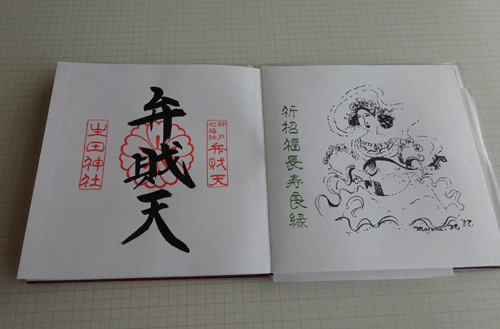 祈招福長寿良縁
神戸
七福神
弁財天
弁財天
生田神社